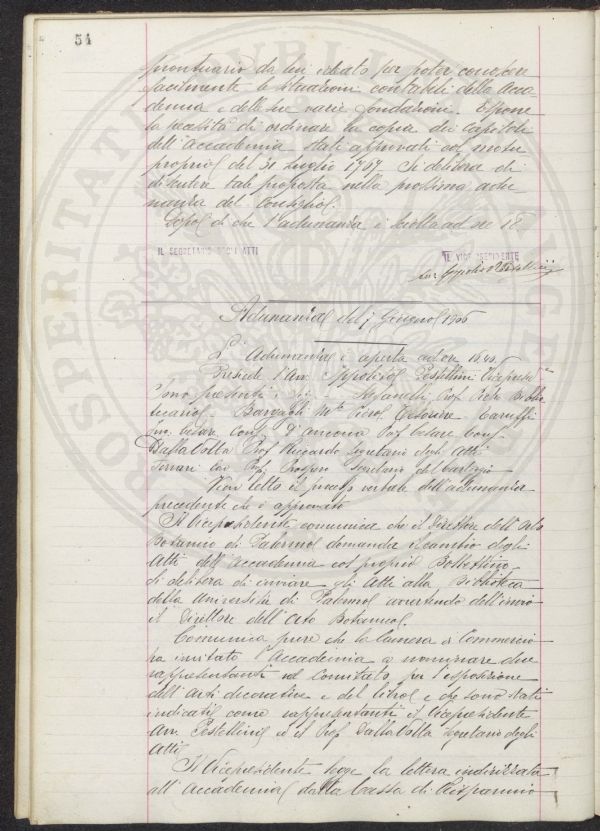 54
prontuario da lui ideato per poter conoscere
facilmente le situazioni contabili della Acca-
demia e delle sue varie fondazioni. Espone
la necessità di ordinare la copia dei Capitoli
dell'Accademia stati approvati col motu
proprio del 31 Luglio 1767. Si delibera di
discutere tale proposta nella prossima adu-
nanza del Consiglio.
Dopo di che l'adunanza è sciolta ad ore 18.
IL SEGRETARIO DEGLI ATTI
IL VICE PRESIDENTE
Ippolito Pestellini
Adunanza del 7 Giugno 1906
L'Adunanza è aperta ad ore 16,40.
Presiede l'Avv. Ippolito Pestellini Vicepresid.e
Sono presenti i Stefanelli Prof. Pietro Biblio-
tecario - Bargagli Piero Tesoriere Caruffi
Ing. Cesare Cons. D'Ancona Prof Cesare Cons.
Dalla Volta Prof Riccardo Segretario degli Atti
Ferrari Cav Prof. Prospero Segretario del Carteggio
Vien letto il processo verbale dell'adunanza
precedente che è approvato
Il Vicepresidente comunica che il Direttore dell'Orto
Botanico di Palermo domanda il cambio degli
Atti dell'Accademia col proprio Bollettino.
Si delibera di inviare gli Atti alla Biblioteca
della Università di Palermo avvertendo dell'invio
il Direttore dell'Orto Botanico.
Comunica pure che la Camera di Commercio
ha invitato l'Accademia a nominare due
rappresentanti nel Comitato per l'esposizione
dell'arti decorative e del libro e che sono stati
indicati come rappresentanti il Vicepresidente
Avv. Pestellini ed il Prof Dalla Volta Segretario degli
Atti
Il Vicepresidente legge la lettera indirizzata
all'Accademia dalla Cassa di Risparmio